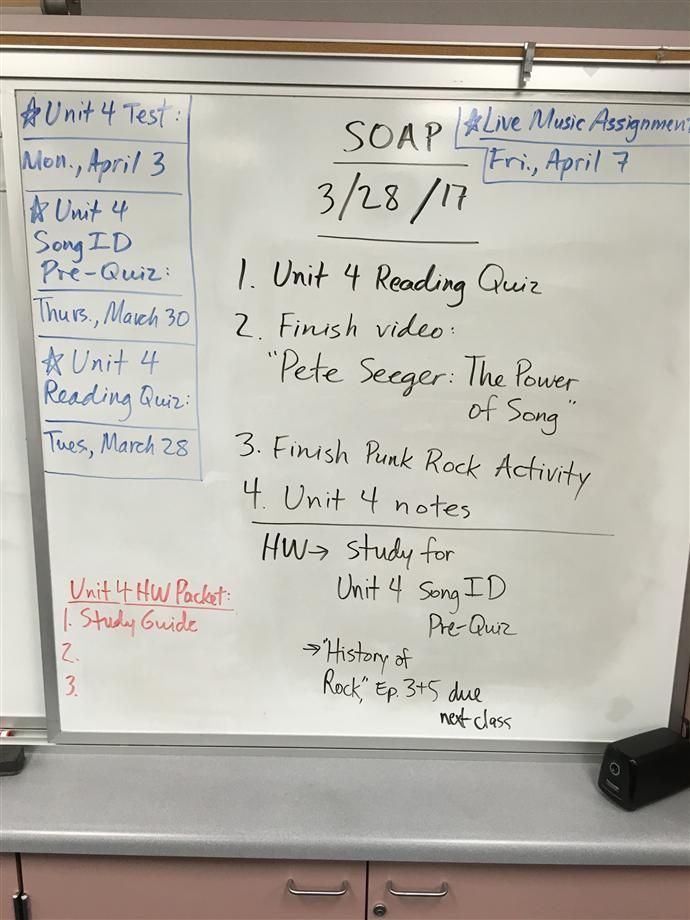 ☆Unit 4 Test:
Mon., April 3
☆ Unit 4
Song ID
Pre-Quiz:
Thurs., March 30
☆ Unit 4
Reading Quiz:
Tues, March 28
SOAP
3/28/17
☆Live Music Assignment
Fri., April 7
1. Unit 4 Reading Quiz
2. Finish video:
"Pete Seeger: The Power
of Song"
3. Finish Punk Rock Activity
4. Unit 4 notes
HW→ Study for
Unit 4 Song ID
Pre-Quiz
→"History of
Rock," Ep. 3+5 due
next class
Unit 4 HW Packet:
1. Study Guide
2.
3.